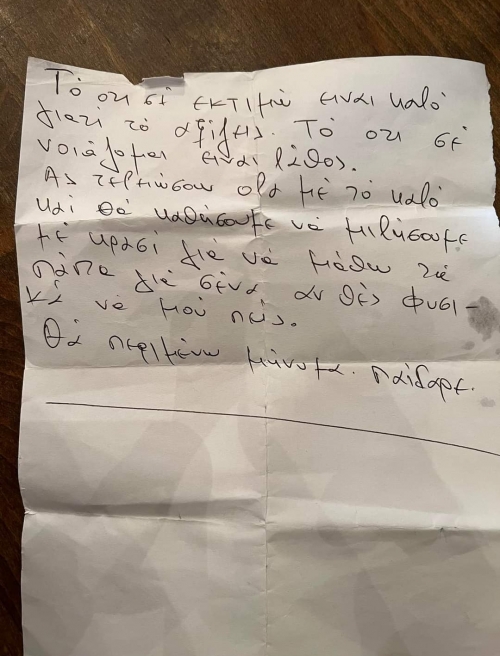 Τό οτι σέ εκτιμώ ειναι καλό
γιατι τό αξίζεις. Τό οτι σέ
νοιάζομαι ειναι λάθος.
Ας τελειώσουν ολα μέ τό καλό
και θά καθήσουμε νά μιλήσουμε
μέ κρασί γιά νά μάθω τά
πάντα γιά σένα αν θές φυσι-
κά νά μού πείς.
Θά περιμένω μήνυμα. παίδαρε.